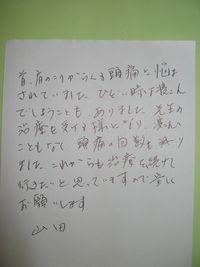 首、肩のこりからくる頭痛に悩ま
されていました。ひどい時は寝こん
でしまうことも、ありました。先生の
治療を受ける様になり、寝こむ
こともなく 頭痛の回数も減り
ました。これからも治療を続けて
行きたいと思っていますので宜しく
お願いします
山田